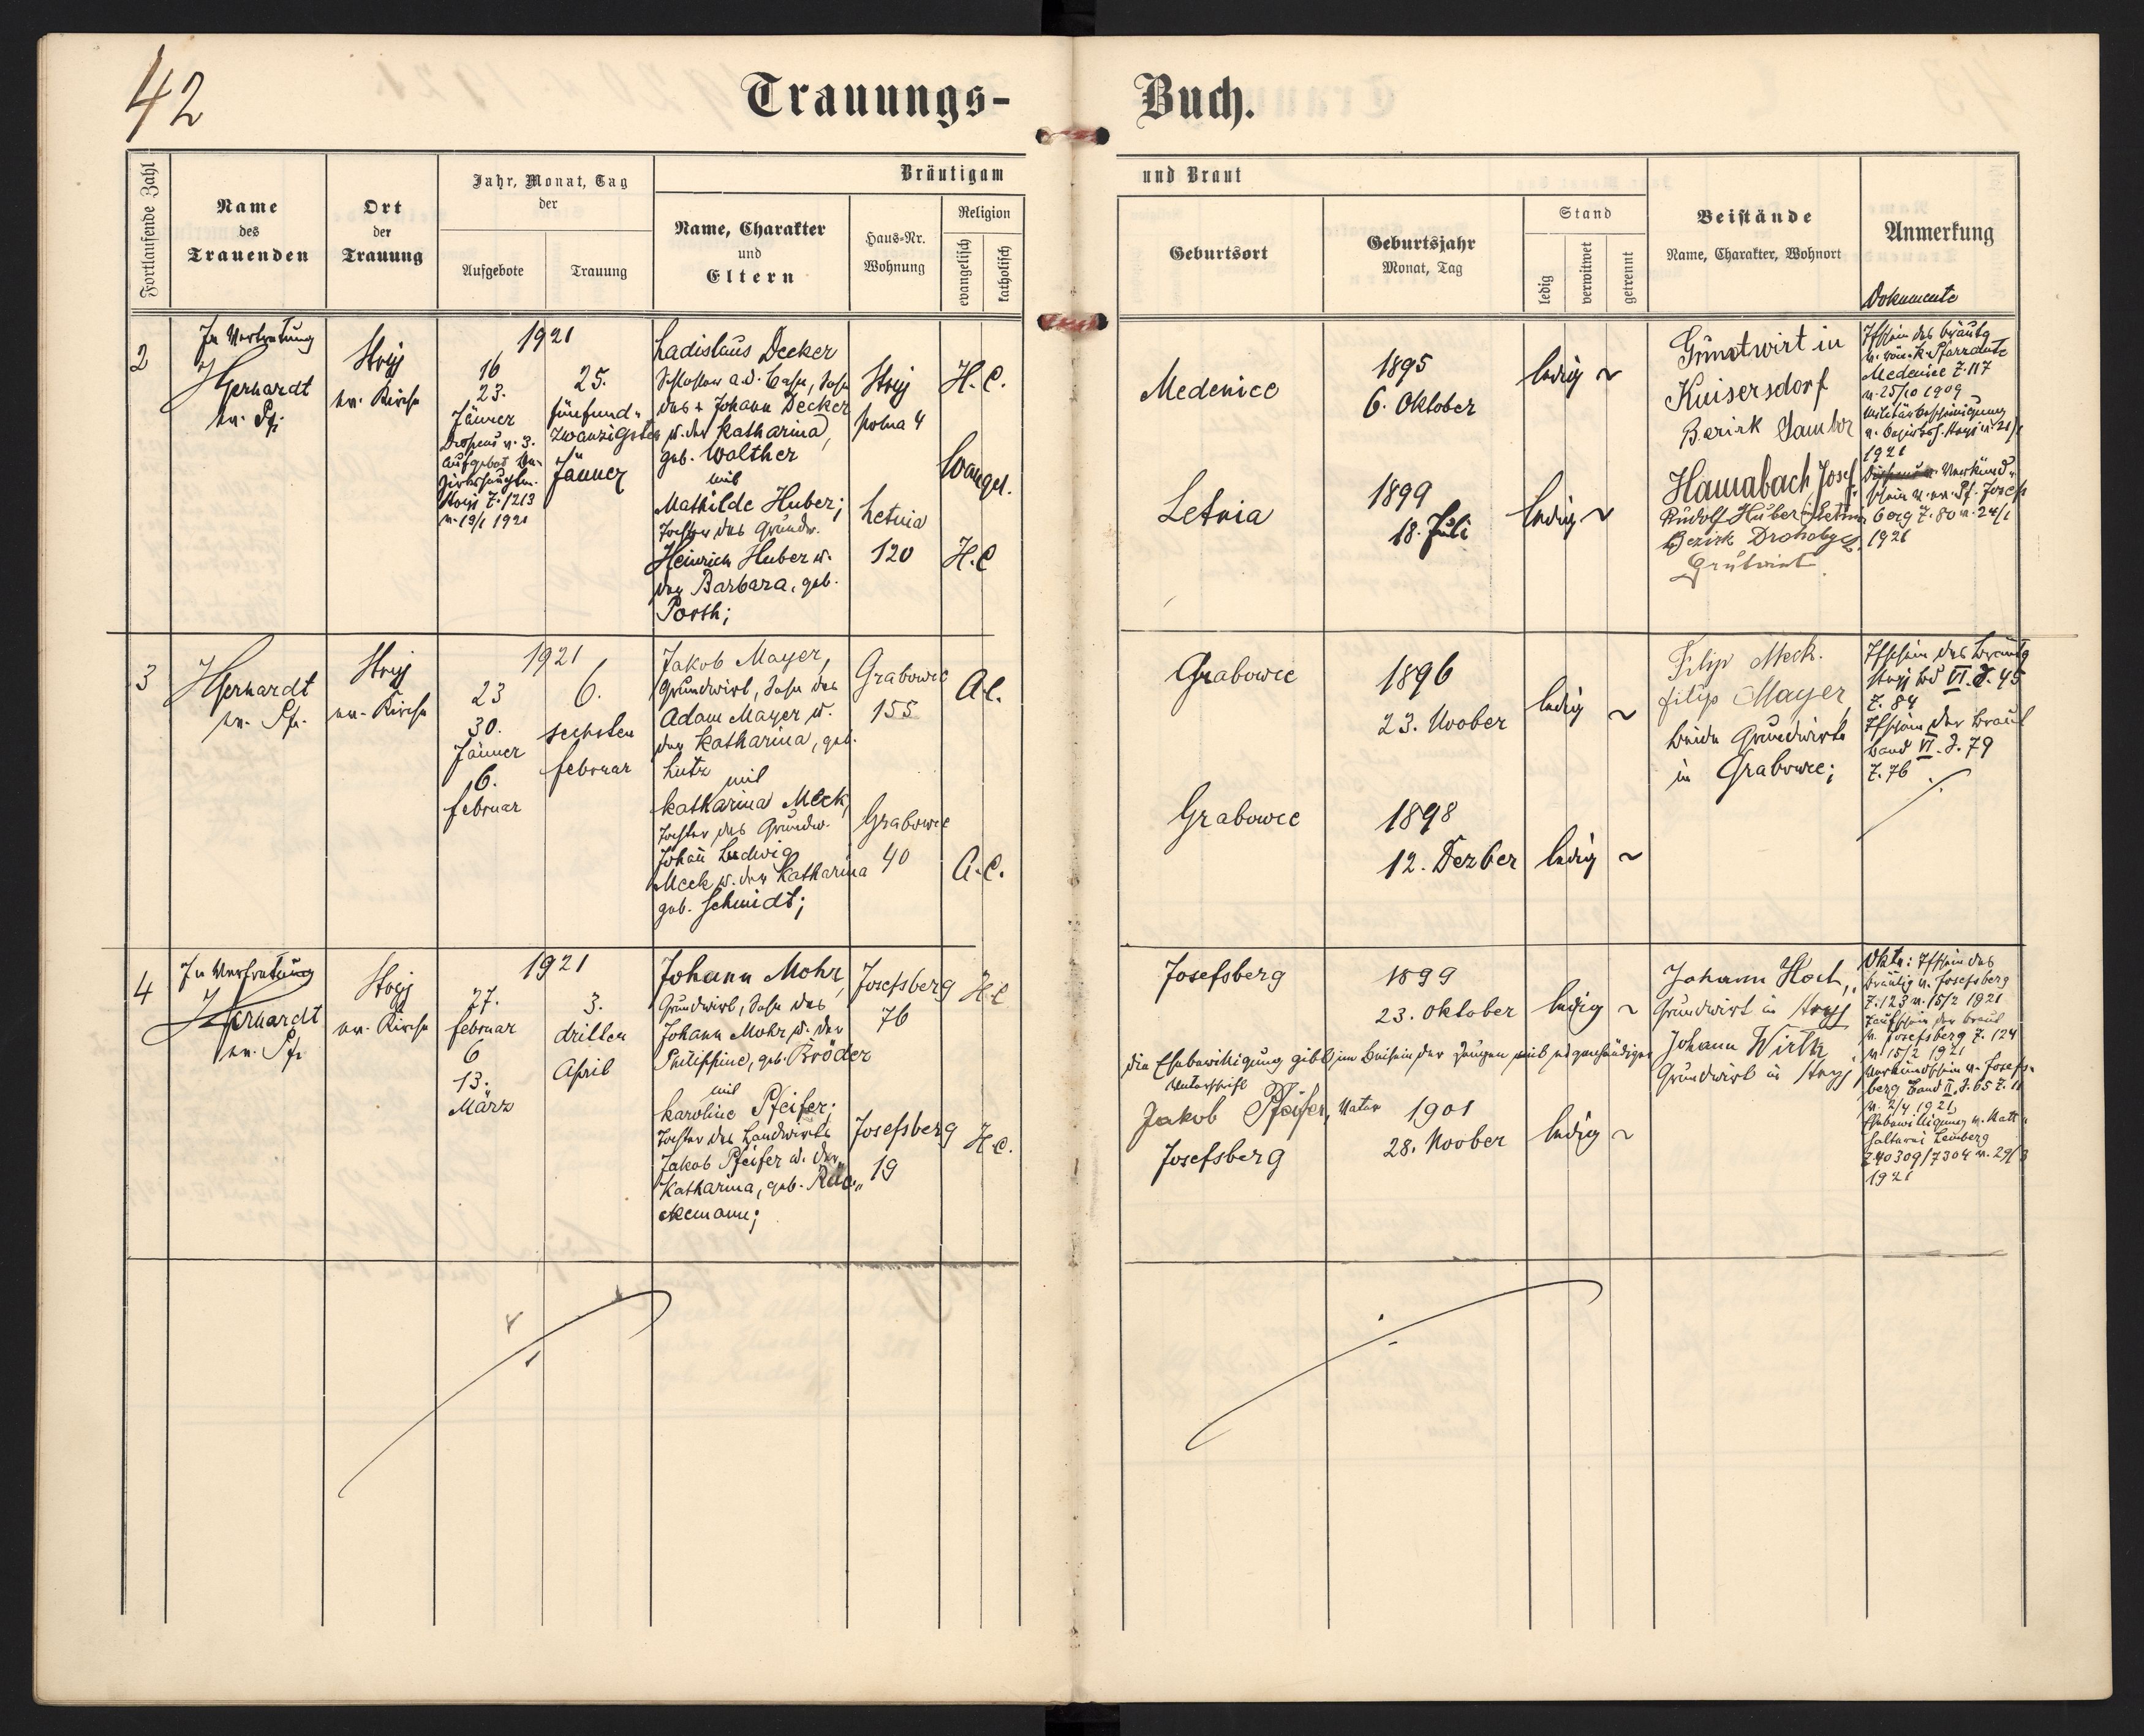 42
Trauungs-
Buch.
Fortlaufende Zahl
Name
des
Trauenden
Ort
der
Trauung
Jahr, Monat, Tag
der
Aufgebote
Trauung
Bräutigam
Name, Charakter
und
Eltern
Haus-Nr.
Wohnung
Religion
evangelisch
katholisch
und Braut
Geburtsort
Geburtsjahr
Monat, Tag
Stand
ledig
verwitwet
getrennt
Beistände
Name, Charakter, Wohnort
Anmerkung
Dokumente
2
In Vertretung
Gerhardt
ev. Pfr.
Stryj
ev. Kirche
1921
16
23.
Jänner
Dispens v. 3.
Aufgebot
Stryj Z. 1213
v. 19/1 1921
25.
fünfund-
zwanzigsten
Jänner
Ladislaus Decker
Schlosser a. d. Bahn, Sohn
des + Johann Decker
u. der Katharina,
geb. Walther
mit
Mathilde Huber;
Tochter des Grundw.
Heinrich Huber u.
der Barbara, geb.
Porth;
Stryj
polna 4
Letnia
120
H. C.
Evangel.
H. C
Medenice
Letnia
1895
6. Oktober
1899
18. Juli
ledig ~
ledig ~
Grundwirt in
Kaisersdorf
Bezirk Sambor
Hamabach Josef
Rudolf Huber in Letnia
Bezirk Drohobycz
Tfschein des Bräutg
v. röm. k. Pfarramte
Medenice Z. 117
v. 25/10 1909
Militärbescheinigung
1921
Verkünd-
schein v. ev. Pf. Josefs
berg Z. 80 v. 24/1
1921
3
Gerhardt
ev. Pfr.
Stryj
ev. Kirche
1921
23
30.
Jänner
6.
Februar
6.
sechsten
Februar
Jakob Mayer,
Grundwirt, Sohn des
Adam Mayer u.
der Katharina, geb.
Lutz
mit
Katharina Meck,
Tochter des Grundw.
Johann Ludwig
Meck u. der Katharina
geb. Schmidt;
Grabowce
155
Grabowce
40
A. C.
A. C.
Grabowce
Grabowce
1896
23. Nvober
1898
12. Dezber
ledig ~
ledig ~
Filip Meck.
Filip Mayer
beide Grundwirte
in Grabowce;
Tfschein des Bräutg
Stryj Bd VI. S. 45
Z. 84
Tfschein der Braut
Band VI. S. 79
Z. 76
4
In Vertretung
Gerhardt
ev. Pfr
Stryj
ev. Kirche
1921
27.
Februar
6
13.
März
3.
dritten
April
Johann Mohr,
Grundwirt, Sohn des
Johann Mohr u. der
Philippine, geb. Bröder
mit
Karoline Pfeifer;
Tochter des Landwirts
Jakob Pfeifer u. der
Katharina, geb.
Josefsberg
76
Josefsberg
19
H. C
H. C.
Josefsberg
1899
23. Oktober
ledig ~
die Ehebewilligung gibt im Beisein der Zeugen mit eigenhändiger
Unterschrift
Jakob Pfeifer, Vater
Josefsberg
1901
28. Nvober
ledig ~
Johann Koch,
Grundwirt in Stryj
Johann Wirth
Grundwirt in Stryj
Dkte: Tfschein des
Bräutig v. Josefsberg
Z. 123 v. 15/2 1921
Taufschein der Braut
v. Josefsberg Z. 124
v. 15/2 1921
Verkündschein v. Josefs-
berg Band II. S. 65 Z. 11
v. 2/4 1921
Ehebewilligung v. Statt-
halterei Lemberg
Z. 40309/7304 v. 29/3
1921